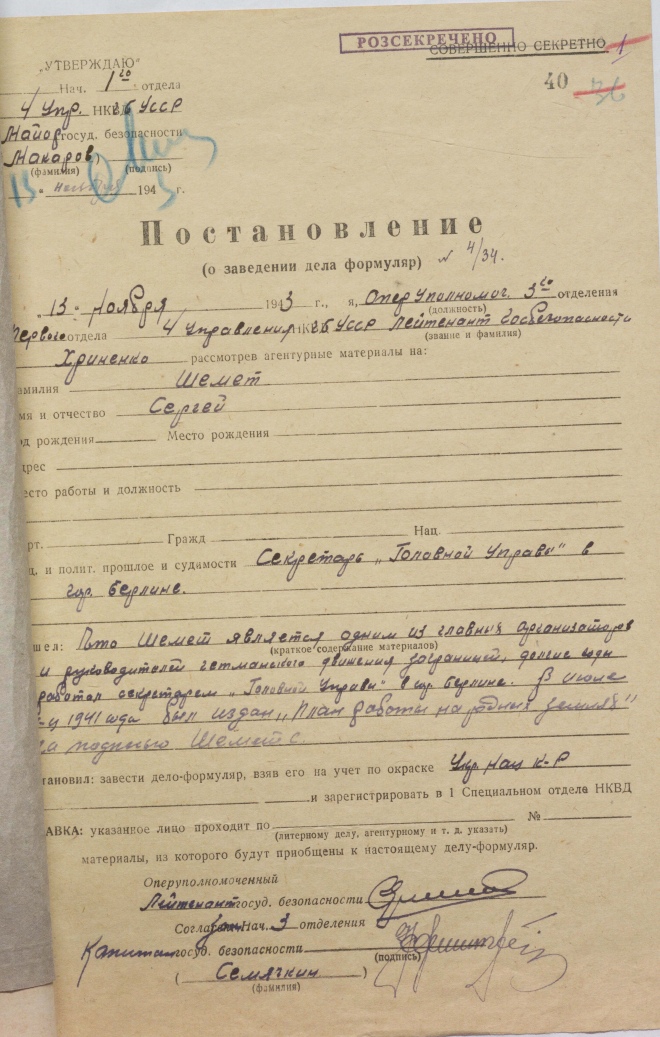 РОЗСЕКРЕЧЕНО
СОВЕРШЕННО СЕКРЕТНО 1
40 36
„УТВЕРЖДАЮ“
Нач. 1го отдела
4 Упр. НКГБ УССР
Майор госуд. безопасности
Макаров
(фамилия) (подпись)
13 " ноября 1943 г.
Постановление
(о заведении дела формуляр) № 4/34.
„13" Ноября 1943 г., я, ОперУполномоч. 3го отделения
(должность)
Первого отдела 4 Управления НКГБ УССР Лейтенант Госбезопасности
(звание и фамилия)
Хриненко рассмотрев агентурные материалы на:
амилия Шемет
мя и отчество Сергей
од рождения Место рождения
дрес
есто работы и должность
рт. Гражд Нац.
ц. и полит. прошлое и судимости Секретарь „Головной Управы" в
гор. Берлине.
шел: Что Шемет является одним из главных организаторов
(краткое содержание материалов)
и руководителей гетманского движения заграницей, долгие годы
работал секретарем „Головной Управы" в гор. Берлине. В июне
м-ц 1941 года был издан „План работы на родных землях"
за подписью Шемет С.
тановил: завести дело-формуляр, взяв его на учет по окраске Укр нац к-р
и зарегистрировать в 1 Специальном отделе НКВД
АВКА: указанное лицо проходит по №
(литерному делу, агентурному и т. д. указать)
материалы, из которого будут приобщены к настоящему делу-формуляр.
Оперуполномоченный
Лейтенант госуд. безопасности
Согласен: Нач. 3 отделения
Капитан госуд. безопасности
(подпись)
( Семягкин )
(фамилия)